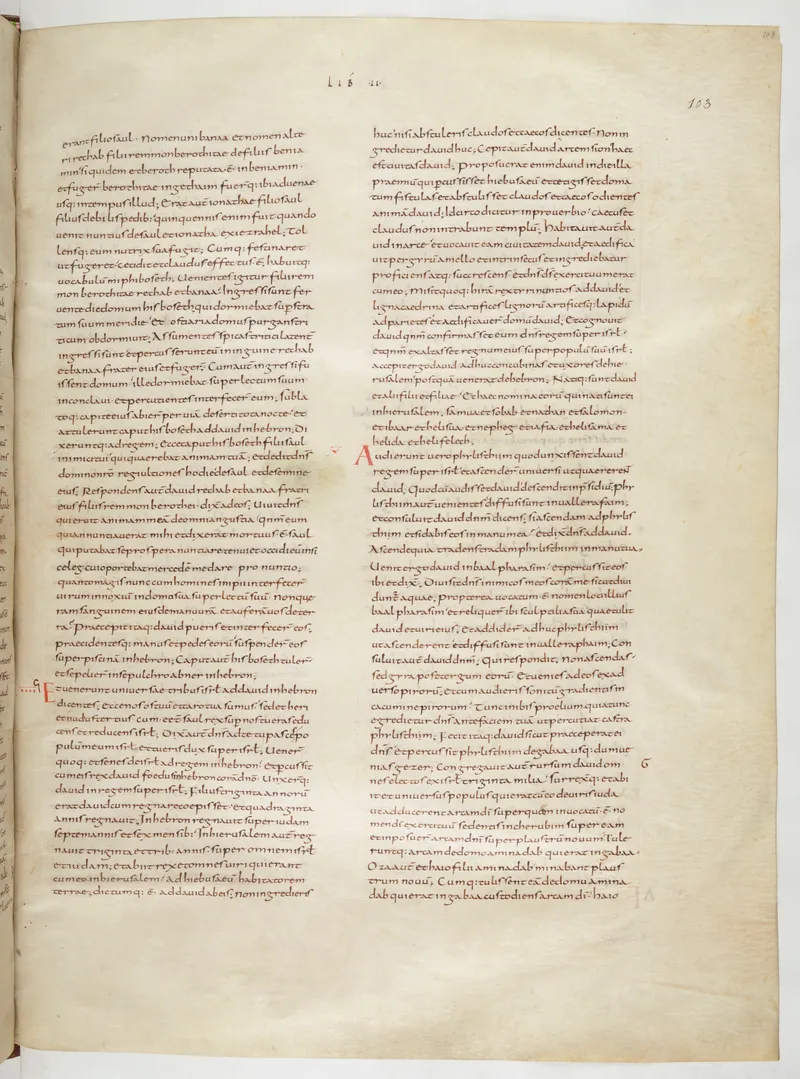 LIB II
103
erant filio saul · Nomen uni banaa et nomen alte
ri rechab filii remmon berothitae de filiis benia
min si quidem et beroth reputata ÷ in beniamin ·
et fuger̄ berothitae in gethaim fuer̄q: ibi aduenae
usq: in tempus illud; Erat aut̄ ionathae filio saul
filius debilis pedib: quinquennis enim fuit quando
uenit nuntius de saul et ionatha ex iezrahel; Tol
lens q: eum nutrix sua fugit; Cumq: festinaret
ut fugeret cecidit et claudus effectus ÷ habuitq:
uocabulū miphiboseth; Uenientes igitur filii rem
mon berothitae rechab et banaa ingressi sunt fer
uente die domum hisboseth qui dormiebat super stra
tum suum meridie et ostiaria domus purgans tri
ticum obdormiuit; Assumentes spicas tritici latent̄
ingressi sunt et percusserunt eū in inguine rechab
et banaa frater eius et fuger̄; Cum aut̄ ingressi fu
issent domum ille dormiebat super lectum suum
in conclaui et percutientes interfecer̄ eum; subla
toq: capite eius abier̄ per uiā deserti tota nocte et
attulerunt caput hisboseth ad dauid in hebron; Di
xeruntq: ad regem; Ecce caput hisboseth filii saul
inimici tui qui quaerebat animam tuā; et dedit dn̄s
domino nr̄o regi ultiones hodie de saul et de semine
eius; Respondens aut̄ dauid rechab et banaa fratri
eius filiis remmon berothei · dixit ad eos; Uiuit dn̄s
qui eruit animam meā de omni angustia qn̄m eum
qui annuntiauerat mihi et dixerat mortuus ÷ saul
qui putabat se prospera nuntiare tenui et occidi eū in si
celeg cui oportebat mercedē me dare pro nuntio;
quanto magis nunc cum homines impii interfecer̄
uirum innoxiū in domo sua sup lectū suū · non que
ram sanguinem eius de manu urā et auferā uos de ter
ra; Praecepit itaq: dauid pueris et interfecer̄ eos;
praecidentesq: manus et pedes eorū suspender̄ eos
super piscinā in hebron; Caput aut̄ hisboseth tuler̄
et sepelier̄ in sepulchro abner in hebron;
Et uenerunt uniuersae tribus isrl̄ ad dauid in hebron
dicentes; Ecce nos os tuū et caro tua sumus · sed et heri
et nudius tertius cum eēt saul rex sup nos tu eras edu
cens et reducens isrl̄; Dixit aut̄ dn̄s ad te tu pasces po
pulū meum isrl̄ et tu eris dux super isrl̄; Uener̄
quoq: et senes de isrl̄ ad regem in hebron · et percussit
cum eis rex dauid foedus in hebron corā dn̄o · Unxer̄q:
dauid in regem super isrl̄; Filius triginta annorū
erat dauid cum regnare coepisset et quadraginta
annis regnauit; In hebron regnauit super iudam
septem annis et sex mensib: In hierusalem aut̄ reg
nauit triginta et trib: annis super omnem isrl̄
et iudam; et abiit rex et omnes uiri qui erant
cum eo in hierusalem · ad hiebusaeū habitatorem
terrae; dictumq: ÷ ad dauid ab eis; non ingredieris
huc nisi abstuleris claudos et caecos dicentes · Non in
gredietur dauid huc; Cepit aut̄ dauid arcem sion haec
est ciuitas dauid; Proposuerat enim dauid in die illa
praemiū qui percussisset hiebusaeū et tetigisset doma
tum fistulas et abstulisset claudos et caecos odientes
animā dauid; Idcirco dicitur in prouerbio · caecus et
claudus non intrabunt templū; Habitauit aut̄ da
uid in arce et uocauit eam ciuitatem dauid et aedifica
uit per gyrū a mello et intrinsecus et ingrediebatur
proficiens atq: succrescens et dn̄s ds̄ exercituum erat
cum eo; Misit quoq: hirā rex tyri nuntios ad dauid et
ligna cedrina et artifices lignorū artificesq: lapidū
ad parietes et aedificauer̄ domū dauid; Et cognouit
dauid qn̄m confirmasset eum dn̄s regem super isrl̄ ·
et qn̄m exaltasset regnum eius super populū suū isrl̄;
accepit ergo dauid adhuc concubinas et uxores de hie
rusalem postquā uenerat de hebron; Natiq: sunt dauid
et alii filii et filiae · et haec nomina eorū qui nati sunt ei
in hierusalem; samua et sobab et nathan et salomon ·
et ibaar et helisua et nepheg · et iafia et helisama et
helida et helifelech;
Audierunt uero phylisthiim quod unxissent dauid
regem super isrl̄ et ascender̄ uniuersi ut quaererent
dauid; Quod cū audisset dauid descendit in praesidiū; phy
listhiim aut̄ uenientes diffusi sunt in ualle rafaim;
et consuluit dauid dn̄m dicens; si ascendam ad phylis
thiim et si dabis eos in manu mea · et dixit dn̄s ad dauid ·
Ascende quia tradens tradam phylisthiim in manu tua ·
Uenit ergo dauid in baal pharasim · et percussit eos
ibi et dixit; Diuisit dn̄s inimicos meos corā me sicut diui
dunt̄ aquae; Propterea uocatum ÷ nomen loci illius
baal pharasim et reliquer̄ ibi sculptilia sua quae tulit
dauid et uiri eius; Et addider̄ adhuc phylisthiim
ut ascenderent et diffusi sunt in ualle raphaim; Con
suluit aut̄ dauid dn̄m; Qui respondit; Non ascendas ·
sed gyra post tergum eorū · et uenies ad eos ex ad
uerso pirorū; et cum audieris sonitū gradientis in
cacumine pirorum · Tunc inibis proelium quia tunc
egredietur dn̄s ante faciem tuā ut percutiat castra
phylisthiim; Fecit itaq: dauid sicut praeceperat ei
dn̄s et percussit phylisthiim de gabaa usq: dum ue
nias gezer; Congregauit aut̄ rursum dauid om
nes electos ex isrl̄ triginta milia · surrexitq: et abi
it et uniuersus populus qui erat cū eo de uiris iuda
ut adducerent arcam dī super quem inuocatū ÷ no
men dn̄i exercituū sedentis in cherubim super eam
et inposuer̄ arcam dn̄i super plaustrū nouum · Tule
runtq: arcam de domo aminadab qui erat in gabaa ·
Oza aut̄ et haio filii aminadab minabant plaus
trum nouū; Cumq: tulissent eā de domu amina
dab qui erat in gabaa custodiens arcam dī · haio